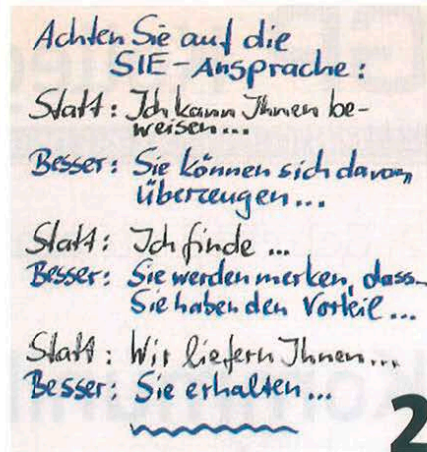 Achten Sie auf die
SIE-Ansprache:
Statt: Ich kann Ihnen be-
weisen...
Besser: Sie können sich davon
überzeugen...
Statt: Ich finde ...
Besser: Sie werden merken, dass...
Sie haben den Vorteil ...
Statt: Wir liefern Ihnen...
Besser: Sie erhalten...
2